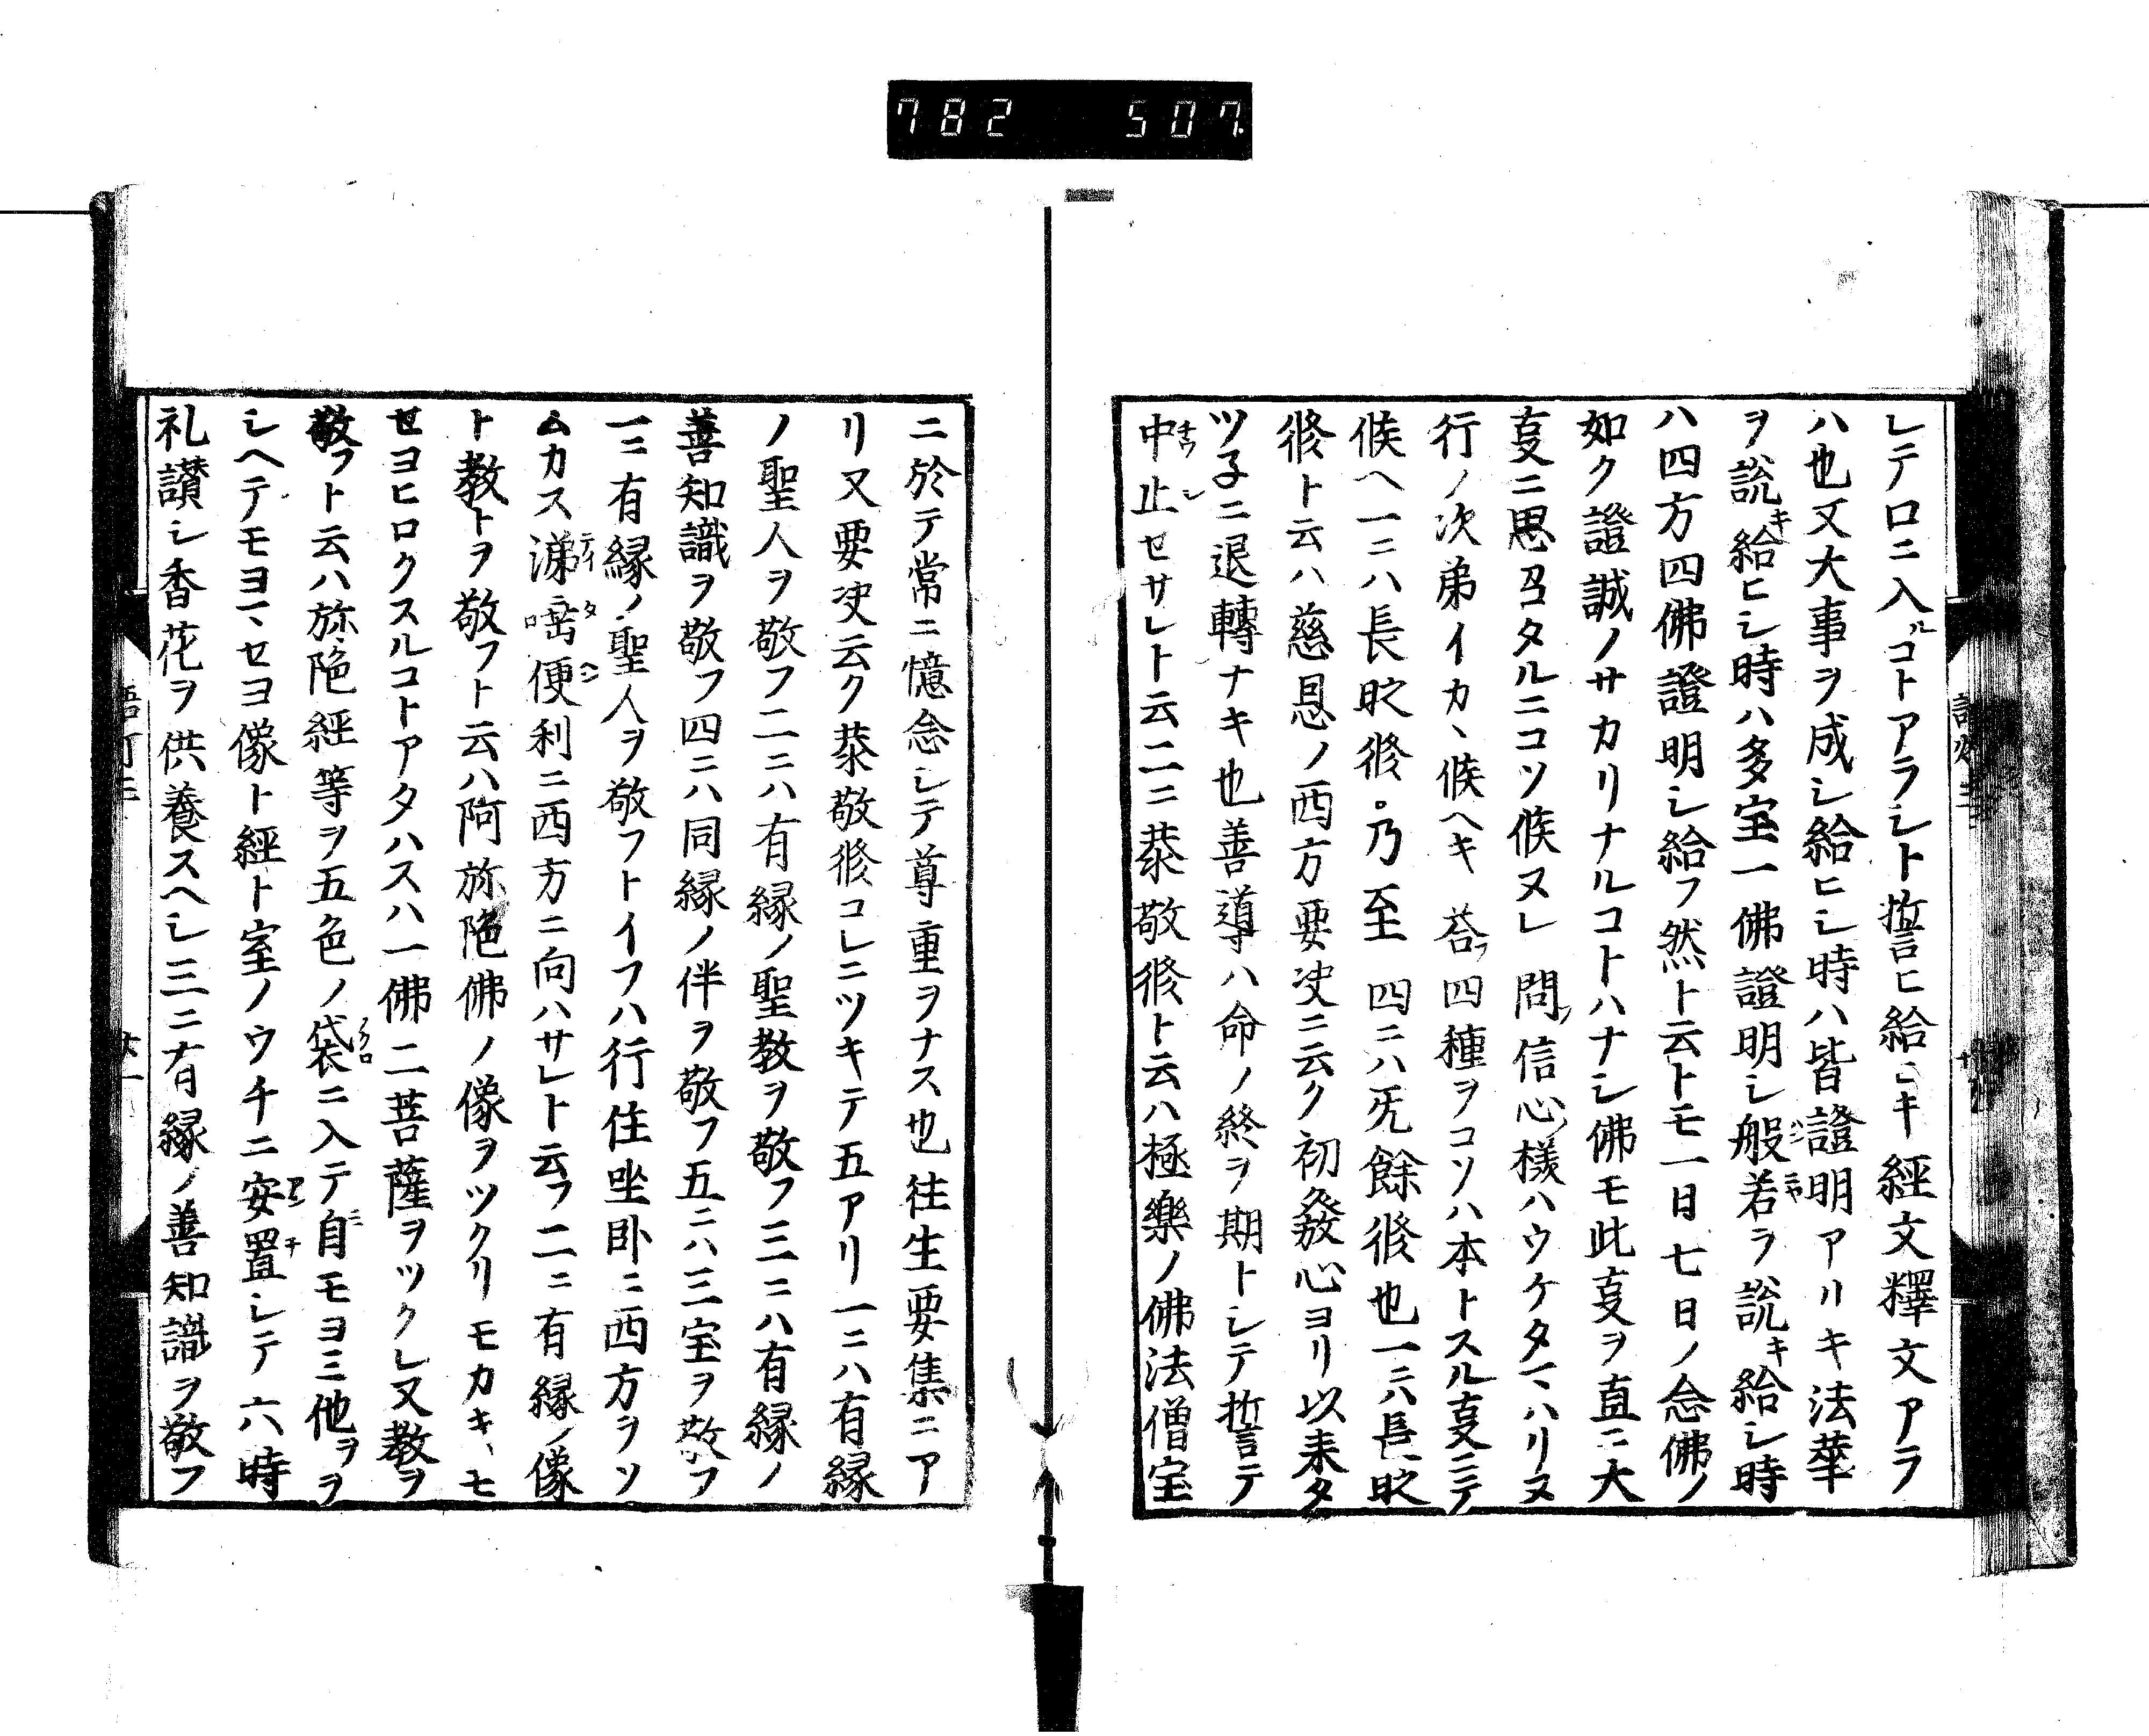 782 507
レテ口ニ入ルコトアラシト誓ヒ給ヒキ經文釋文アラ
ハ也又大事ヲ成シ給ヒシ時ハ皆證明アリキ法華
ヲ說キ給ヒシ時ハ多宝一佛證明シ般若ヲ說キ給シ時
ハ四方四佛證明シ給フ然ト云トモ一日七日ノ念佛ノ
如ク證誠ノサカリナルコトハナシ佛モ此叓ヲ直ニ大
叓ニ思召タルニコソ候ヌレ問信心ノ樣ハウケタマハリヌ
行ノ次弟イカヽ候ヘキ荅四種ヲコソハ本トスル叓ニテ
候ヘ一ニハ長時修乃至四ニハ无餘修也一ニハ長時
修ト云ハ慈恩ノ西方要決ニ云ク初發心ヨリ以来タ
ツ子ニ退轉ナキ也善導ハ命ノ終ヲ期トシテ誓テ
中止セサレト云二ニ恭敬修ト云ハ極樂ノ佛法僧宝
ニ於テ常ニ憶念シテ尊重ヲナス也往生要集ニア
リ又要決云ク恭敬修コレニツキテ五アリ一ニハ有縁
ノ聖人ヲ敬フ二ニハ有縁ノ聖教ヲ敬フ三ニハ有縁ノ
善知識ヲ敬フ四ニハ同縁ノ伴ヲ敬フ五ニハ三宝ヲ敬フ
一ニ有縁ノ聖人ヲ敬フトイフハ行住坐卧ニ西方ヲソ
ムカス涕唾便利ニ西方ニ向ハサレト云フ二ニ有縁ノ像
ト教トヲ敬フト云ハ阿弥陁佛ノ像ヲツクリモカキヽモ
セヨヒロクスルコトアタハスハ一佛二菩薩ヲツクレ又教ヲ
敬フト云ハ弥陁經等ヲ五色ノ袋ニ入テ自モヨミ他ヲヲ
シヘテモヨマセヨ像ト經ト室ノウチニ安置シテ六時
礼讃シ香花ヲ供養スヘシ三ニ有縁ノ善知識ヲ敬フ